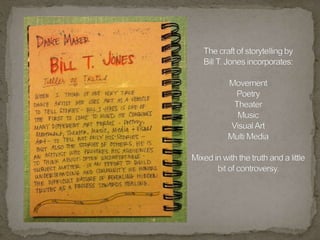 DANCE MAKER
BILL T. JONES
TELLER OF TRUTHS
WHEN I THINK OF ONE VERY TRUE
DANCE ARTIST WHO USES ART AS A VEHICLE
TO TELL STORIES - BILL T. JONES IS ONE OF
THE FIRST TO COME TO MIND. HE COMBINES
MANY DIFFERENT ART FORMS - POETRY,
MOVEMENT, THEATER, MUSIC, MEDIA + VISUAL
ART - TO TELL NOT ONLY HIS STORIES -
BUT ALSO THE STORIES OF OTHERS. HE IS
AN ACTIVIST WHO PROVOKES HIS AUDIENCES
TO THINK ABOUT OFTEN UNCOMFORTABLE
SUBJECT MATTER. IN AN EFFORT TO BUILD
UNDERSTANDING AND COMMUNITY HE HONORS
THE DIFFICULT NATURE OF REVEALING HIDDEN
TRUTHS AS A PROCESS TOWARDS HEALING.
The craft of storytelling by
Bill T. Jones incorporates:
Movement
Poetry
Theater
Music
Visual Art
Multi Media
Mixed in with the truth and a little
bit of controversy.